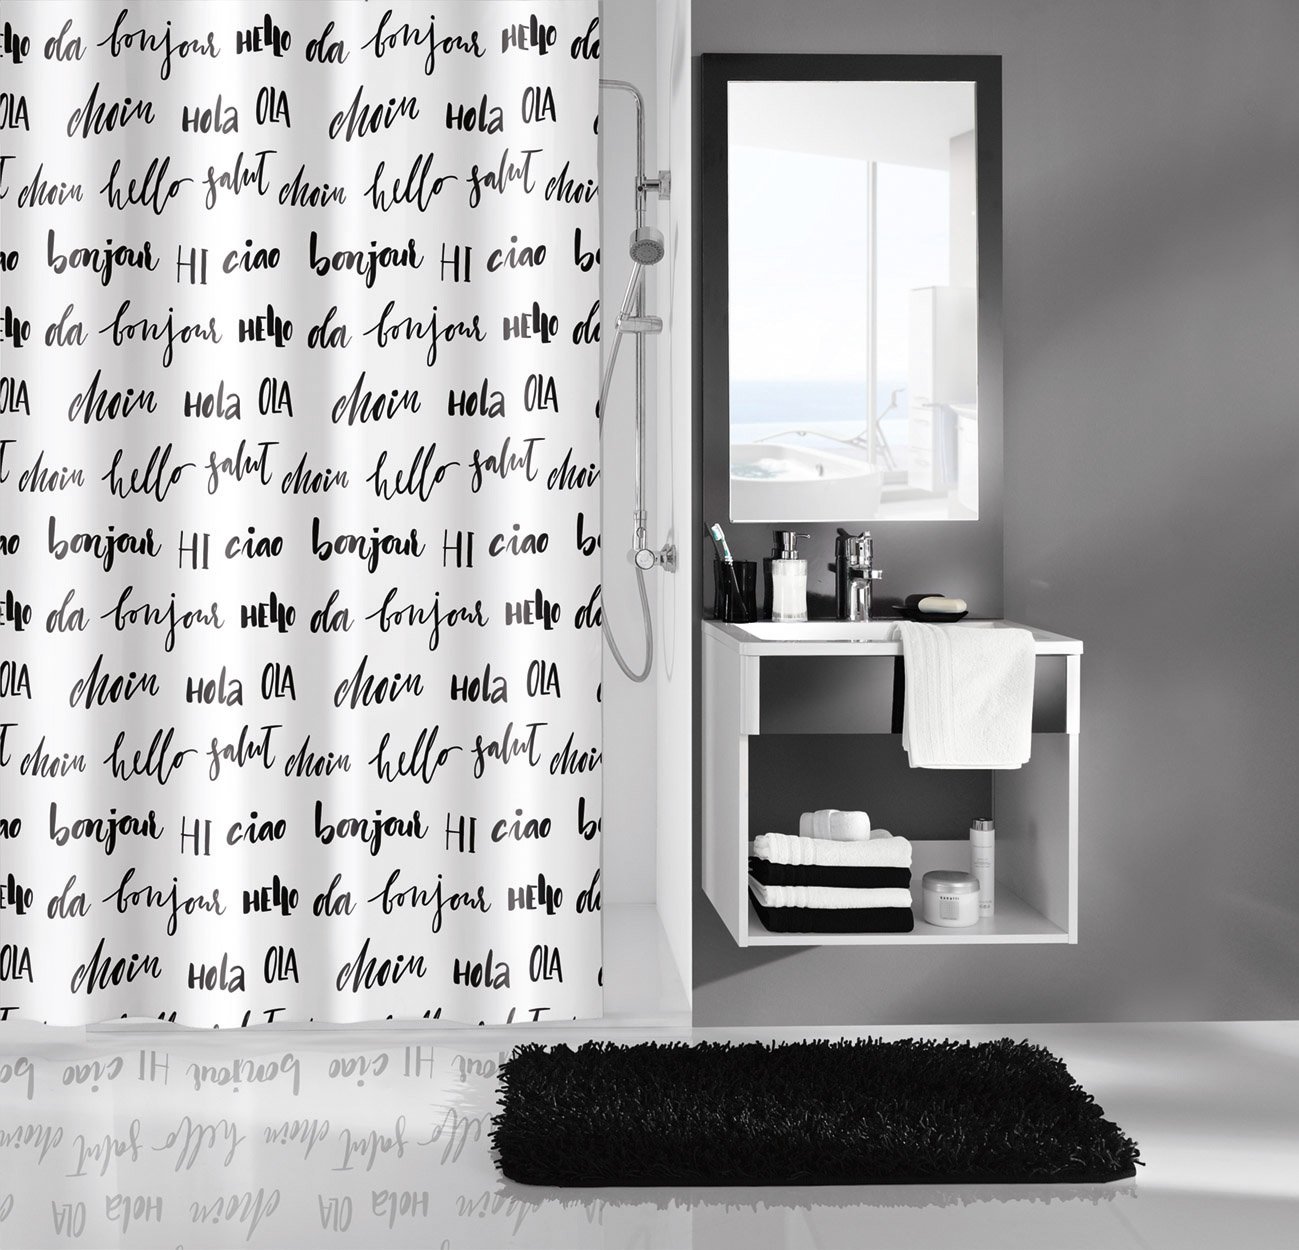 Hello ola bonjour Hello ola bonjour Hello ola
OLA choin Hola OLA choin Hola OLA
choin hello salut choin hello salut choin
ciao bonjour HI ciao bonjour HI ciao
Hello ola bonjour Hello ola bonjour Hello ola
OLA choin Hola OLA choin Hola OLA
choin hello salut choin hello salut choin
ciao bonjour HI ciao bonjour HI ciao
Hello ola bonjour Hello ola bonjour Hello ola
OLA choin Hola OLA choin Hola OLA
choin hello salut choin hello salut choin
ciao bonjour HI ciao bonjour HI ciao
Hello ola bonjour Hello ola bonjour Hello ola
OLA choin Hola OLA choin Hola OLA